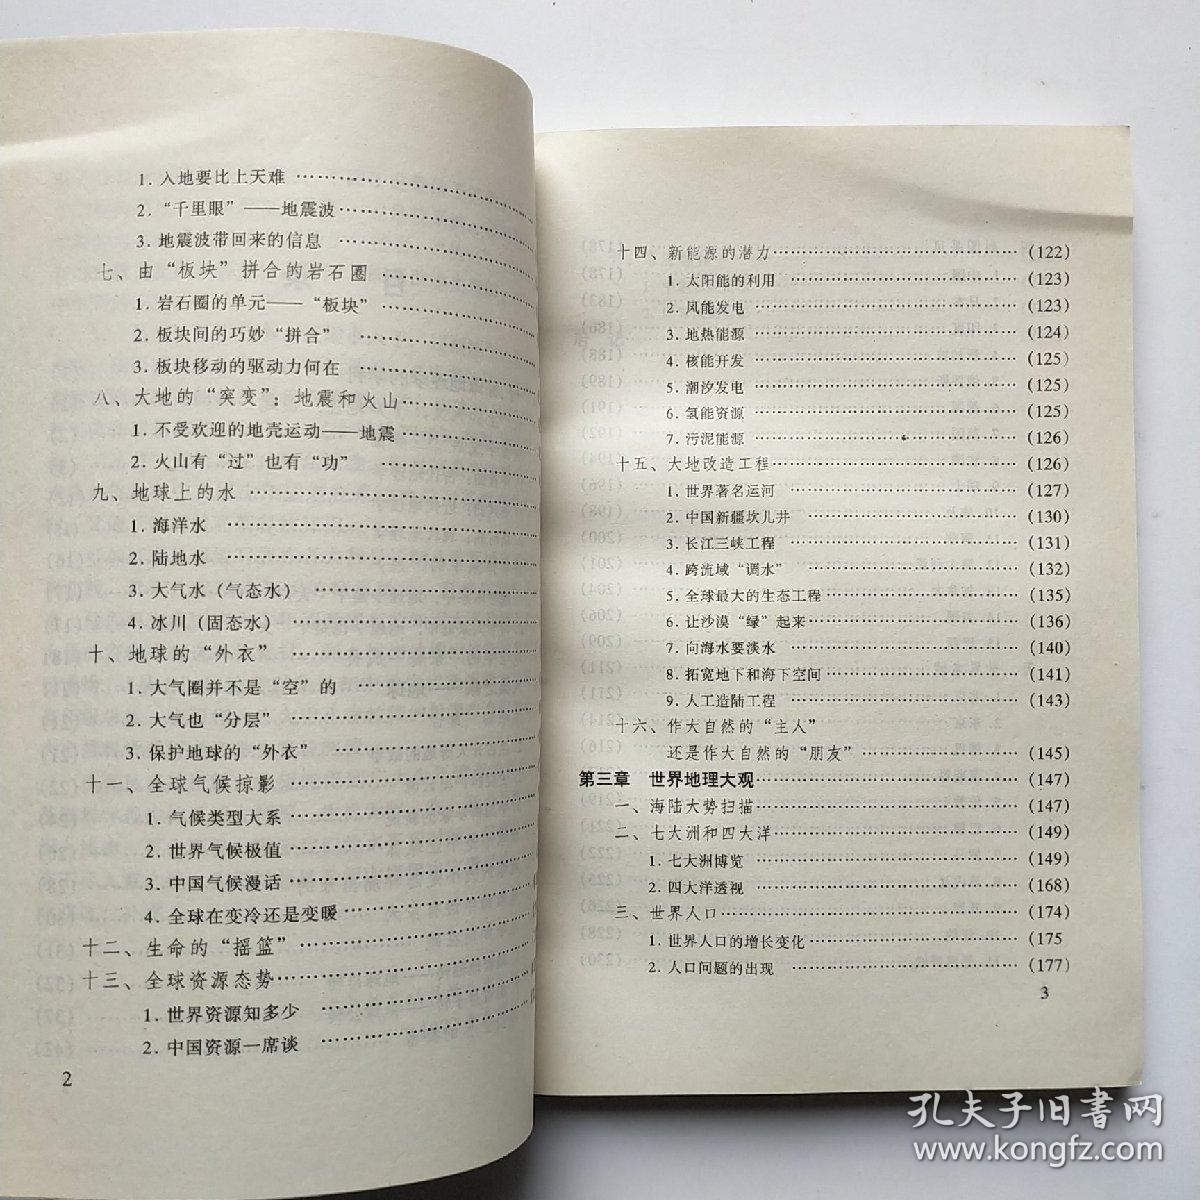 1. 入地要比上天难
2. “千里眼”——地震波
3. 地震波带回来的信息
七、由“板块”拼合的岩石圈
1. 岩石圈的单元——“板块”
2. 板块间的巧妙“拼合”
3. 板块移动的驱动力何在
八、大地的“突变”：地震和火山
1. 不受欢迎的地壳运动——地震
2. 火山有“过”也有“功”
九、地球上的水
1. 海洋水
2. 陆地水
3. 大气水（气态水）
4. 冰川（固态水）
十、地球的“外衣”
1. 大气圈并不是“空”的
2. 大气也“分层”
3. 保护地球的“外衣”
十一、全球气候掠影
1. 气候类型大系
2. 世界气候极值
3. 中国气候漫话
4. 全球在变冷还是变暖
十二、生命的“摇篮”
十三、全球资源态势
1. 世界资源知多少
2. 中国资源一席谈
2
十四、新能源的潜力 (122)
1. 太阳能的利用 (123)
2. 风能发电 (123)
3. 地热能源 (124)
4. 核能开发 (125)
5. 潮汐发电 (125)
6. 氢能资源 (125)
7. 污泥能源 (126)
十五、大地改造工程 (126)
1. 世界著名运河 (127)
2. 中国新疆坎儿井 (130)
3. 长江三峡工程 (131)
4. 跨流域“调水” (132)
5. 全球最大的生态工程 (135)
6. 让沙漠“绿”起来 (136)
7. 向海水要淡水 (140)
8. 拓宽地下和海下空间 (141)
9. 人工造陆工程 (143)
十六、作大自然的“主人”
还是作大自然的“朋友” (145)
第三章 世界地理大观 (147)
一、海陆大势扫描 (147)
二、七大洲和四大洋 (149)
1. 七大洲博览 (149)
2. 四大洋透视 (168)
三、世界人口 (174)
1. 世界人口的增长变化 (175
2. 人口问题的出现 (177)
3
孔夫子旧书网
www.kongfz.com